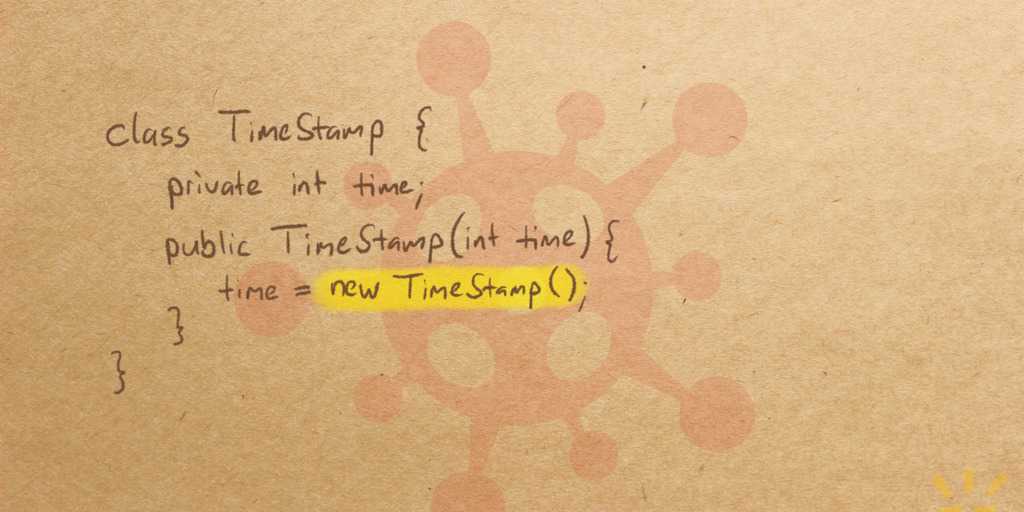 class TimeStamp {
private int time;
public TimeStamp(int time) {
time = new TimeStamp();
}
}